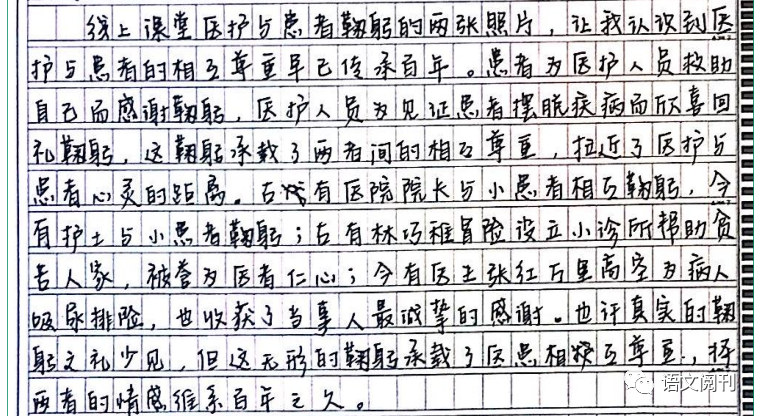 线上课堂医护与患者鞠躬的两张照片，让我认识到医
护与患者的相互尊重早已传承百年。患者为医护人员救助
自己而感谢鞠躬，医护人员为见证患者摆脱疾病而欣喜回
礼鞠躬，这鞠躬承载了两者间的相互尊重，拉近了医护与
患者心灵的距离。古有医院院长与小患者相互鞠躬，今
有护士与小患者鞠躬；古有林巧稚冒险设立小诊所帮助贫
苦人家，被誉为医者仁心；今有医生张红万里高空为病人
吸尿排险，也收获了当事人最诚挚的感谢。也许真实的鞠
躬之礼少见，但这无形的鞠躬承载了医患相互尊重，将
两者的情感维系百年之久。
语文阅刊